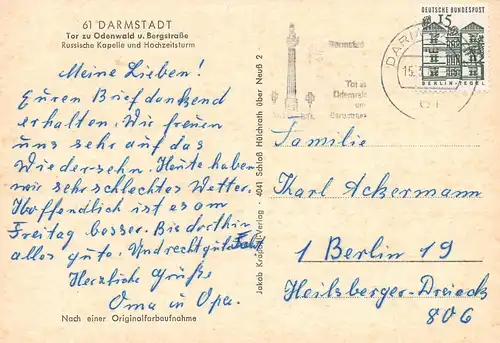 61 DARMSTADT
Tor zu Odenwald u. Bergstraße
Russische Kapelle und Hochzeitsturm
Meine Lieben!
Euren Brief dankend
erhalten. Wir freuen
uns sehr auf das
Wiedersehn. Heute haben
wir sehr schlechtes Wetter.
Hoffendlich ist es am
Freitag besser. Bis dorthin
alles gute. Und recht gute
Herzliche Grüße
Oma u Opa.
Nach einer Originalfarbaufnahme
Jakob Krapohl-Verlag · 4041 Schloß Hülchrath über Neuß 2
Darmstadt
Tor zu
Odenwald
und
Bergstrasse
15
DEUTSCHE BUNDESPOST
15
BERLIN-TEGEL
Familie
Karl Ackermann
1 Berlin 19
Heilsberger-Dreieck
806